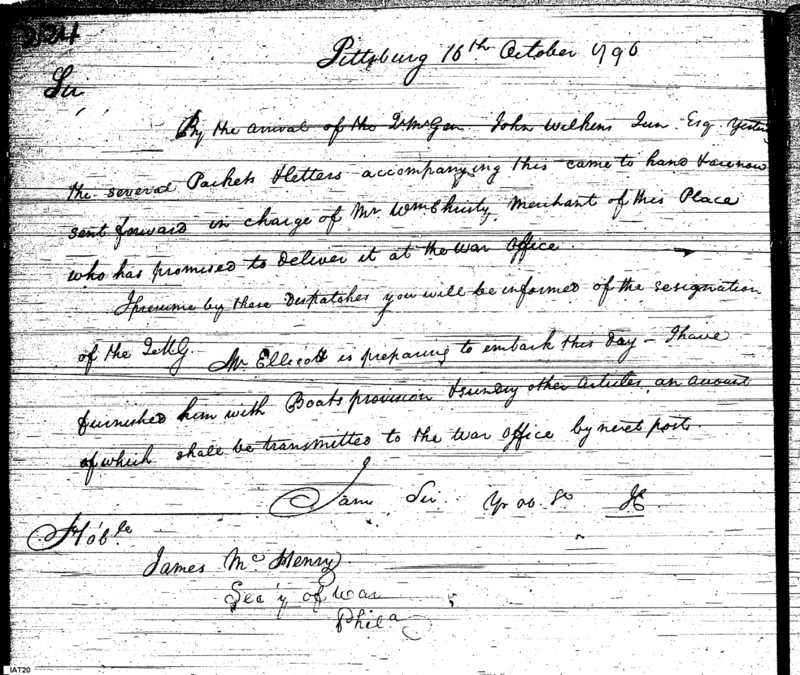 224
Pittsburg 16th October 1796
Sir,
By the arrival of the Q M Gen John Wilkins Jun Esq Yester
the several Packets & letters accompanying this came to hand & are now
sent forward in charge of Mr Wm Christy, Merchant of this Place
who has promised to deliver it at the War Office.
I presume by these Dispatches you will be informed of the resignation
of the Q M G. Mr Ellicott is preparing to embark this Day – I have
furnished him with Boats provision & sundry other articles, an account
of which shall be transmitted to the War Office by next post.
I am Sir Yr ob St
Hoble
James McHenry
Sec'y of War
Phila
IAT20